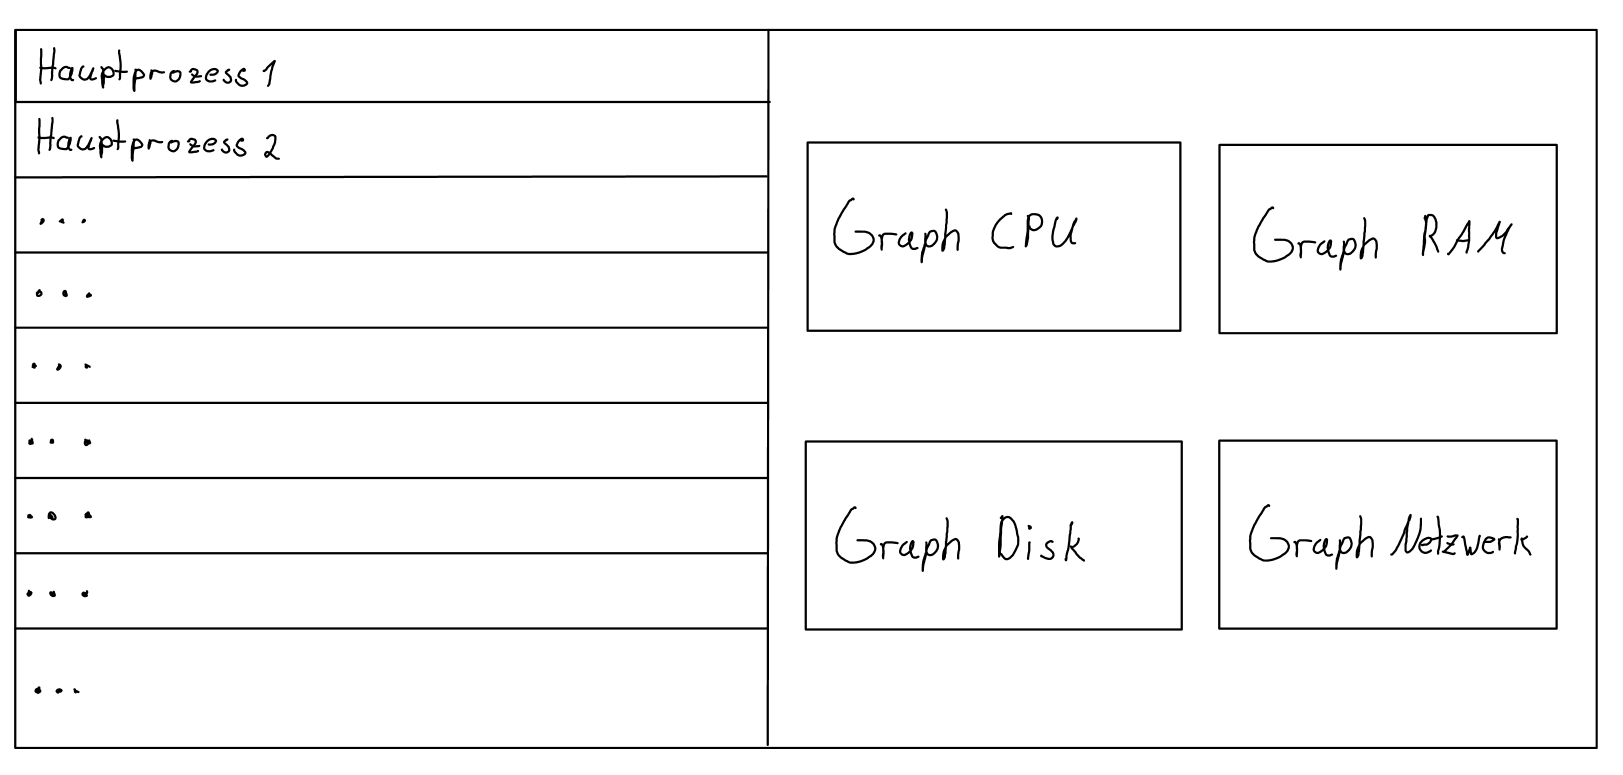 Hauptprozess 1
Hauptprozess 2
...
...
...
...
...
...
...
Graph CPU
Graph RAM
Graph Disk
Graph Netzwerk